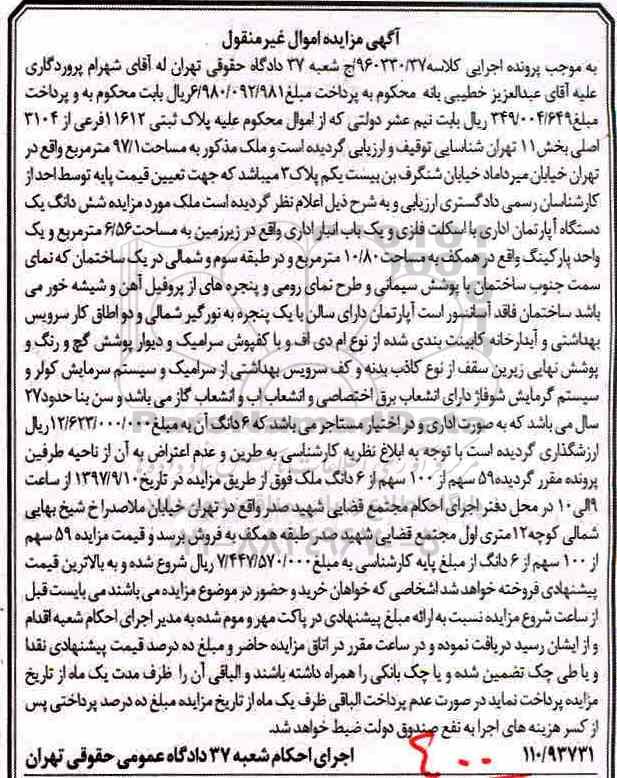 آگهی مزایده اموال غیرمنقول
به موجب پرونده اجرایی کلاسه۹۶۰۳۳۰/۳۷/ج شعبه ۳۷ دادگاه حقوقی تهران له آقای شهرام پروردگاری
علیه آقای عبدالعزیز خطیبی بانه محکوم به پرداخت مبلغ۶/۹۸۰/۰۹۲/۹۸۱ریال بابت محکوم به و پرداخت
مبلغ۳۴۹/۰۰۴/۶۴۹ ریال بابت نیم عشر دولتی که از اموال محکوم علیه پلاک ثبتی ۱۱۶۱۲فرعی از ۳۱۰۴
اصلی بخش۱۱ تهران شناسایی توقیف و ارزیابی گردیده است و ملک مذکور به مساحت۹۷/۱ مترمربع واقع در
تهران خیابان میرداماد خیابان شنگرف بن بیست یکم پلاک۳ میباشد که جهت تعیین قیمت پایه توسط احد از
کارشناسان رسمی دادگستری ارزیابی و به شرح ذیل اعلام نظر گردیده است ملک مورد مزایده شش دانگ یک
دستگاه آپارتمان اداری با اسکلت فلزی و یک باب انبار اداری واقع در زیرزمین به مساحت۶/۵۶ مترمربع و یک
واحد پارکینگ واقع در همکف به مساحت۱۰/۸۰ مترمربع و در طبقه سوم و شمالی در یک ساختمان که نمای
سمت جنوب ساختمان با پوشش سیمانی و طرح نمای رومی و پنجره های از پروفیل آهن و شیشه خور می
باشد ساختمان فاقد آسانسور است آپارتمان دارای سالن با یک پنجره به نورگیر شمالی و دو اطاق کار سرویس
بهداشتی و آبدارخانه کابینت بندی شده از نوع ام دی اف و با کفپوش سرامیک و دیوار پوشش گچ و رنگ و
پوشش نهایی زیرین سقف از نوع کاذب بدنه و کف سرویس بهداشتی از سرامیک و سیستم سرمایش کولر و
سیستم گرمایش شوفاژ دارای انشعاب برق اختصاصی و انشعاب اب و انشعاب گاز می باشد و سن بنا حدود۲۷
سال می باشد که به صورت اداری و در اختیار مستاجر می باشد که ۶دانگ آن به مبلغ۱۲/۶۲۳/۰۰۰/۰۰۰ریال
ارزشگذاری گردیده است با توجه به ابلاغ نظریه کارشناسی به طرین و عدم اعتراض به آن از ناحیه طرفین
پرونده مقرر گردیده۵۹ سهم از ۱۰۰ سهم از ۶ دانگ ملک فوق از طریق مزایده در تاریخ۱۳۹۷/۹/۱۰ از ساعت
۹الی۱۰ در محل دفتر اجرای احکام مجتمع قضایی شهید صدر واقع در تهران خیابان ملاصدرا خ شیخ بهایی
شمالی کوچه۱۲متری اول مجتمع قضایی شهید صدر طبقه همکف به فروش برسد و قیمت مزایده ۵۹ سهم
از ۱۰۰ سهم از ۶ دانگ از مبلغ پایه کارشناسی به مبلغ۷/۴۴۷/۵۷۰/۰۰۰ ریال شروع شده و به بالاترین قیمت
پیشنهادی فروخته خواهد شد اشخاصی که خواهان خرید و حضور در موضوع مزایده می باشند می بایست قبل
از ساعت شروع مزایده نسبت به ارائه مبلغ پیشنهادی در پاکت مهر و موم شده به مدیر اجرای احکام شعبه اقدام
و از ایشان رسید دریافت نموده و در ساعت مقرر در اتاق مزایده حاضر و مبلغ ده درصد قیمت پیشنهادی نقدا
و یا طی چک تضمین شده و یا چک بانکی را همراه داشته باشند و الباقی آن را ظرف مدت یک ماه از تاریخ
مزایده پرداخت نماید در صورت عدم پرداخت الباقی ظرف یک ماه از تاریخ مزایده مبلغ ده درصد پرداختی پس
از کسر هزینه های اجرا به نفع صندوق دولت ضبط خواهد شد.
۱۱۰/۹۳۷۳۱ اجرای احکام شعبه ۳۷ دادگاه عمومی حقوقی تهران